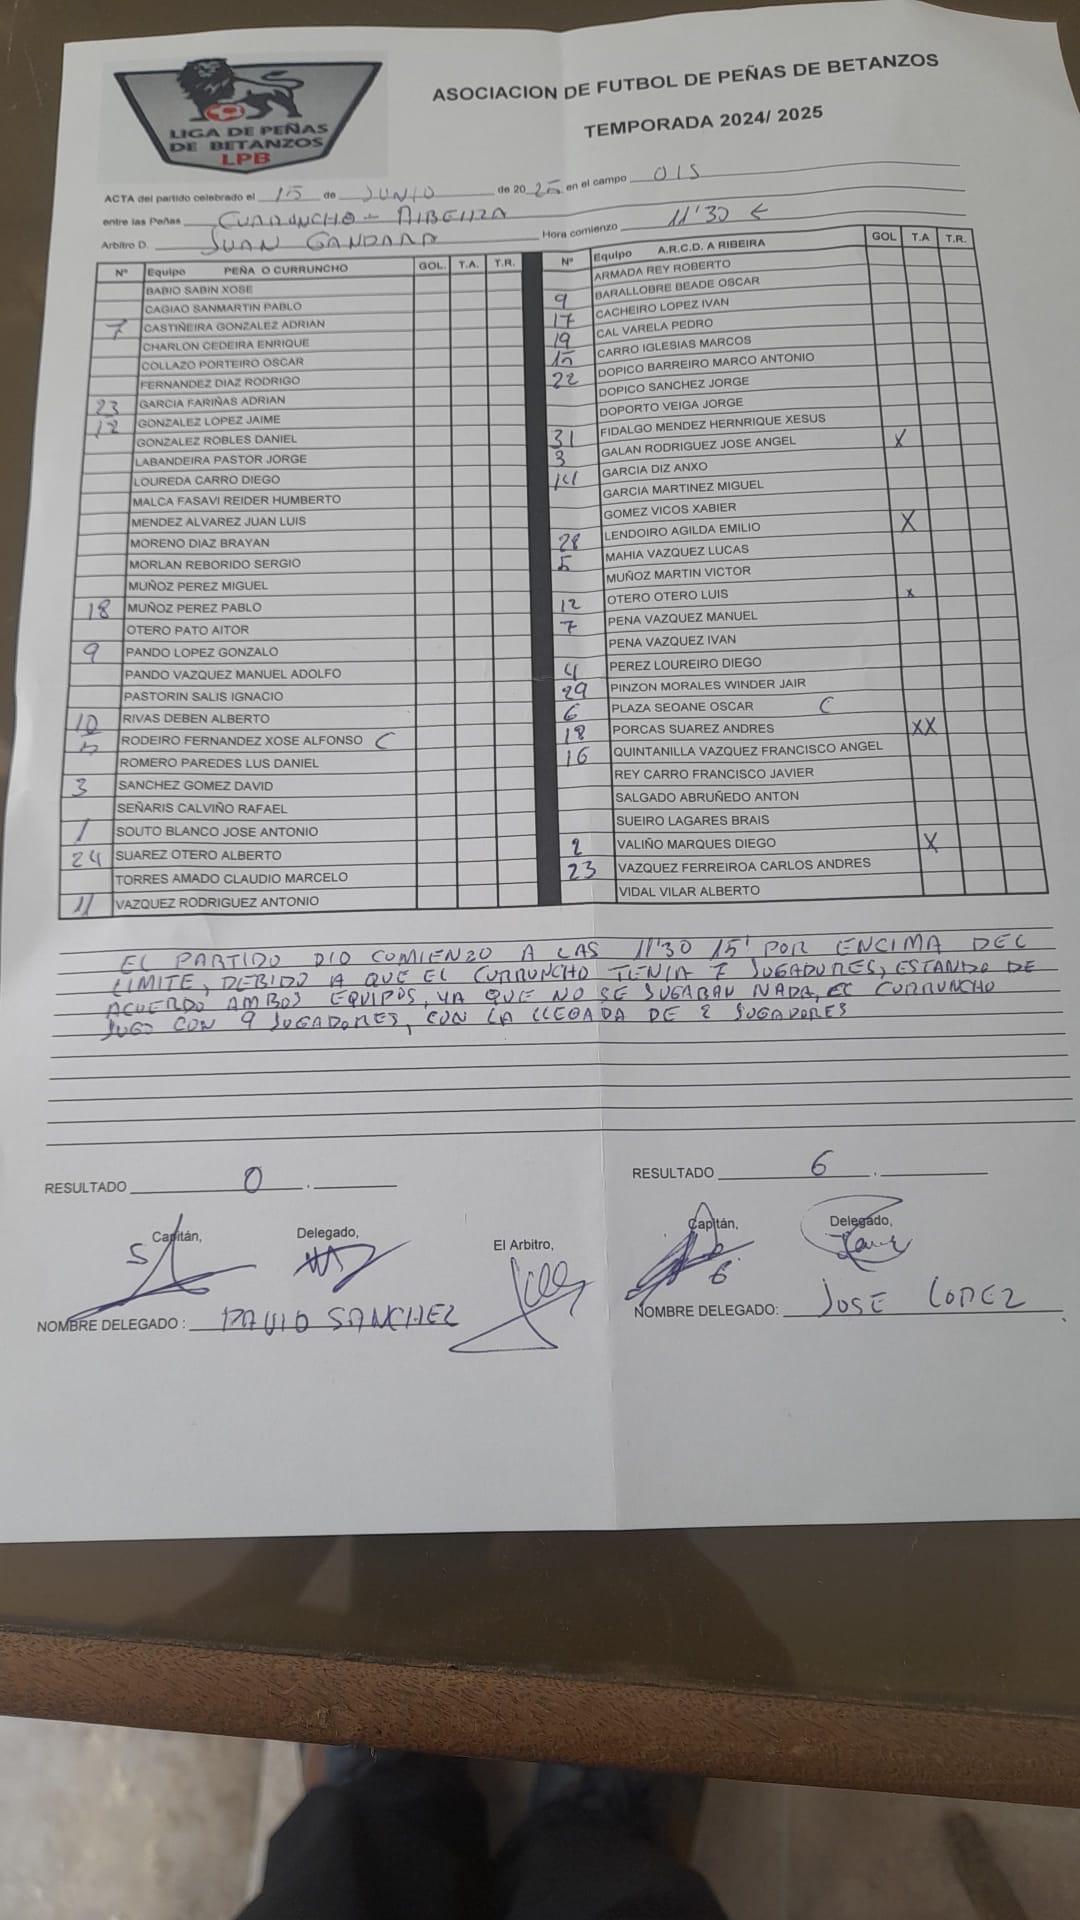 LIGA DE PEÑAS
DE BETANZOS
LPB
ASOCIACION DE FUTBOL DE PEÑAS DE BETANZOS
TEMPORADA 2024/ 2025
ACTA del partido celebrado el 15 de JUNIO de 20 25 en el campo OIS
entre las Peñas CURRUNCHO - RIBEIRA
Arbitro D. JUAN GANDARA Hora comienzo 11'30
Nº Equipo PEÑA O CURRUNCHO GOL. T.A. T.R.
BABIO SABIN XOSE
CAGIAO SANMARTIN PABLO
7 CASTIÑEIRA GONZALEZ ADRIAN
CHARLON CEDEIRA ENRIQUE
COLLAZO PORTEIRO OSCAR
FERNANDEZ DIAZ RODRIGO
23 GARCIA FARIÑAS ADRIAN
12 GONZALEZ LOPEZ JAIME
GONZALEZ ROBLES DANIEL
LABANDEIRA PASTOR JORGE
LOUREDA CARRO DIEGO
MALCA FASAVI REIDER HUMBERTO
MENDEZ ALVAREZ JUAN LUIS
MORENO DIAZ BRAYAN
MORLAN REBORIDO SERGIO
MUÑOZ PEREZ MIGUEL
18 MUÑOZ PEREZ PABLO
OTERO PATO AITOR
9 PANDO LOPEZ GONZALO
PANDO VAZQUEZ MANUEL ADOLFO
PASTORIN SALIS IGNACIO
10 RIVAS DEBEN ALBERTO
5 RODEIRO FERNANDEZ XOSE ALFONSO C
ROMERO PAREDES LUS DANIEL
3 SANCHEZ GOMEZ DAVID
SEÑARIS CALVIÑO RAFAEL
1 SOUTO BLANCO JOSE ANTONIO
24 SUAREZ OTERO ALBERTO
TORRES AMADO CLAUDIO MARCELO
11 VAZQUEZ RODRIGUEZ ANTONIO
Nº Equipo A.R.C.D. A RIBEIRA GOL T.A T.R.
ARMADA REY ROBERTO
9 BARALLOBRE BEADE OSCAR
17 CACHEIRO LOPEZ IVAN
19 CAL VARELA PEDRO
15 CARRO IGLESIAS MARCOS
22 DOPICO BARREIRO MARCO ANTONIO
DOPICO SANCHEZ JORGE
DOPORTO VEIGA JORGE
31 FIDALGO MENDEZ HERNRIQUE XESUS
3 GALAN RODRIGUEZ JOSE ANGEL X
14 GARCIA DIZ ANXO
GARCIA MARTINEZ MIGUEL
GOMEZ VICOS XABIER
28 LENDOIRO AGILDA EMILIO X
5 MAHIA VAZQUEZ LUCAS
MUÑOZ MARTIN VICTOR
12 OTERO OTERO LUIS x
7 PENA VAZQUEZ MANUEL
PENA VAZQUEZ IVAN
4 PEREZ LOUREIRO DIEGO
29 PINZON MORALES WINDER JAIR
6 PLAZA SEOANE OSCAR C
18 PORCAS SUAREZ ANDRES XX
16 QUINTANILLA VAZQUEZ FRANCISCO ANGEL
REY CARRO FRANCISCO JAVIER
SALGADO ABRUÑEDO ANTON
SUEIRO LAGARES BRAIS
2 VALIÑO MARQUES DIEGO X
23 VAZQUEZ FERREIROA CARLOS ANDRES
VIDAL VILAR ALBERTO
EL PARTIDO DIO COMIENZO A LAS 11'30 15' POR ENCIMA DEL
LIMITE, DEBIDO A QUE EL CURRUNCHO TENIA 7 JUGADORES, ESTANDO DE
ACUERDO AMBOS EQUIPOS, YA QUE NO SE JUGABAN NADA, EL CURRUNCHO
JUGO CON 9 JUGADORES, CON LA LLEGADA DE 2 JUGADORES
RESULTADO 0 . RESULTADO 6 .
Capitán, Delegado, El Arbitro, Capitán, Delegado,
5 6
NOMBRE DELEGADO : DAVID SANCHEZ NOMBRE DELEGADO: JOSE LOPEZ